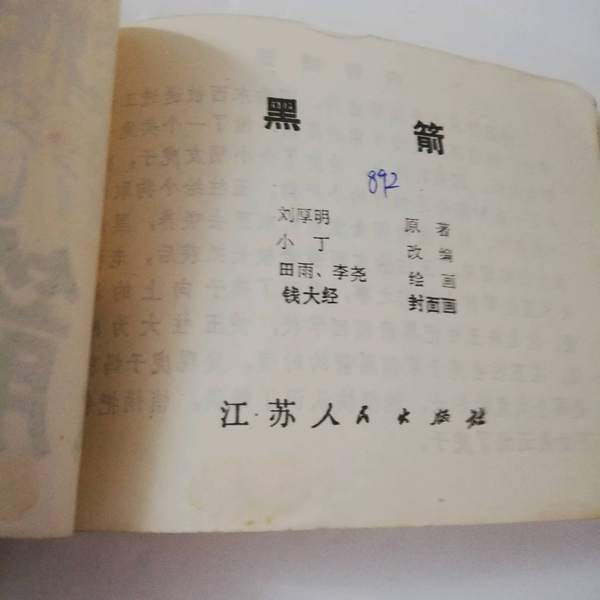 黑 箭
892
刘厚明 原著
小丁 改编
田雨、李尧 绘画
钱大经 封面画
江苏人民出版社